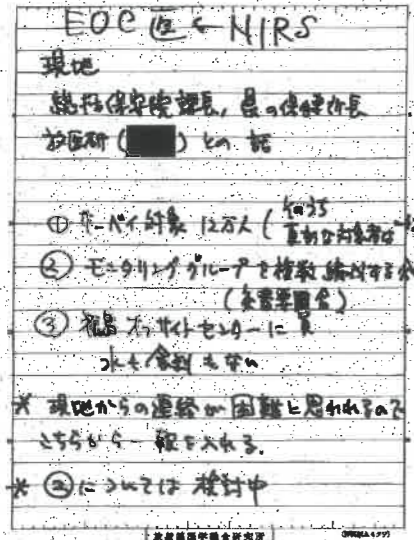 EOC ← NIRS
現地
総括保安院課長, 県の保健所長
放医研 ( ) との話
① サーベイ対象 12万人 (
② モニタリンググループを複数編成する
③ 福島オフサイトセンターに
水も食料もない
* 現地からの連絡が困難と思われるので
こちらから一報を入れる.
* ②については検討中
放射線医学総合研究所